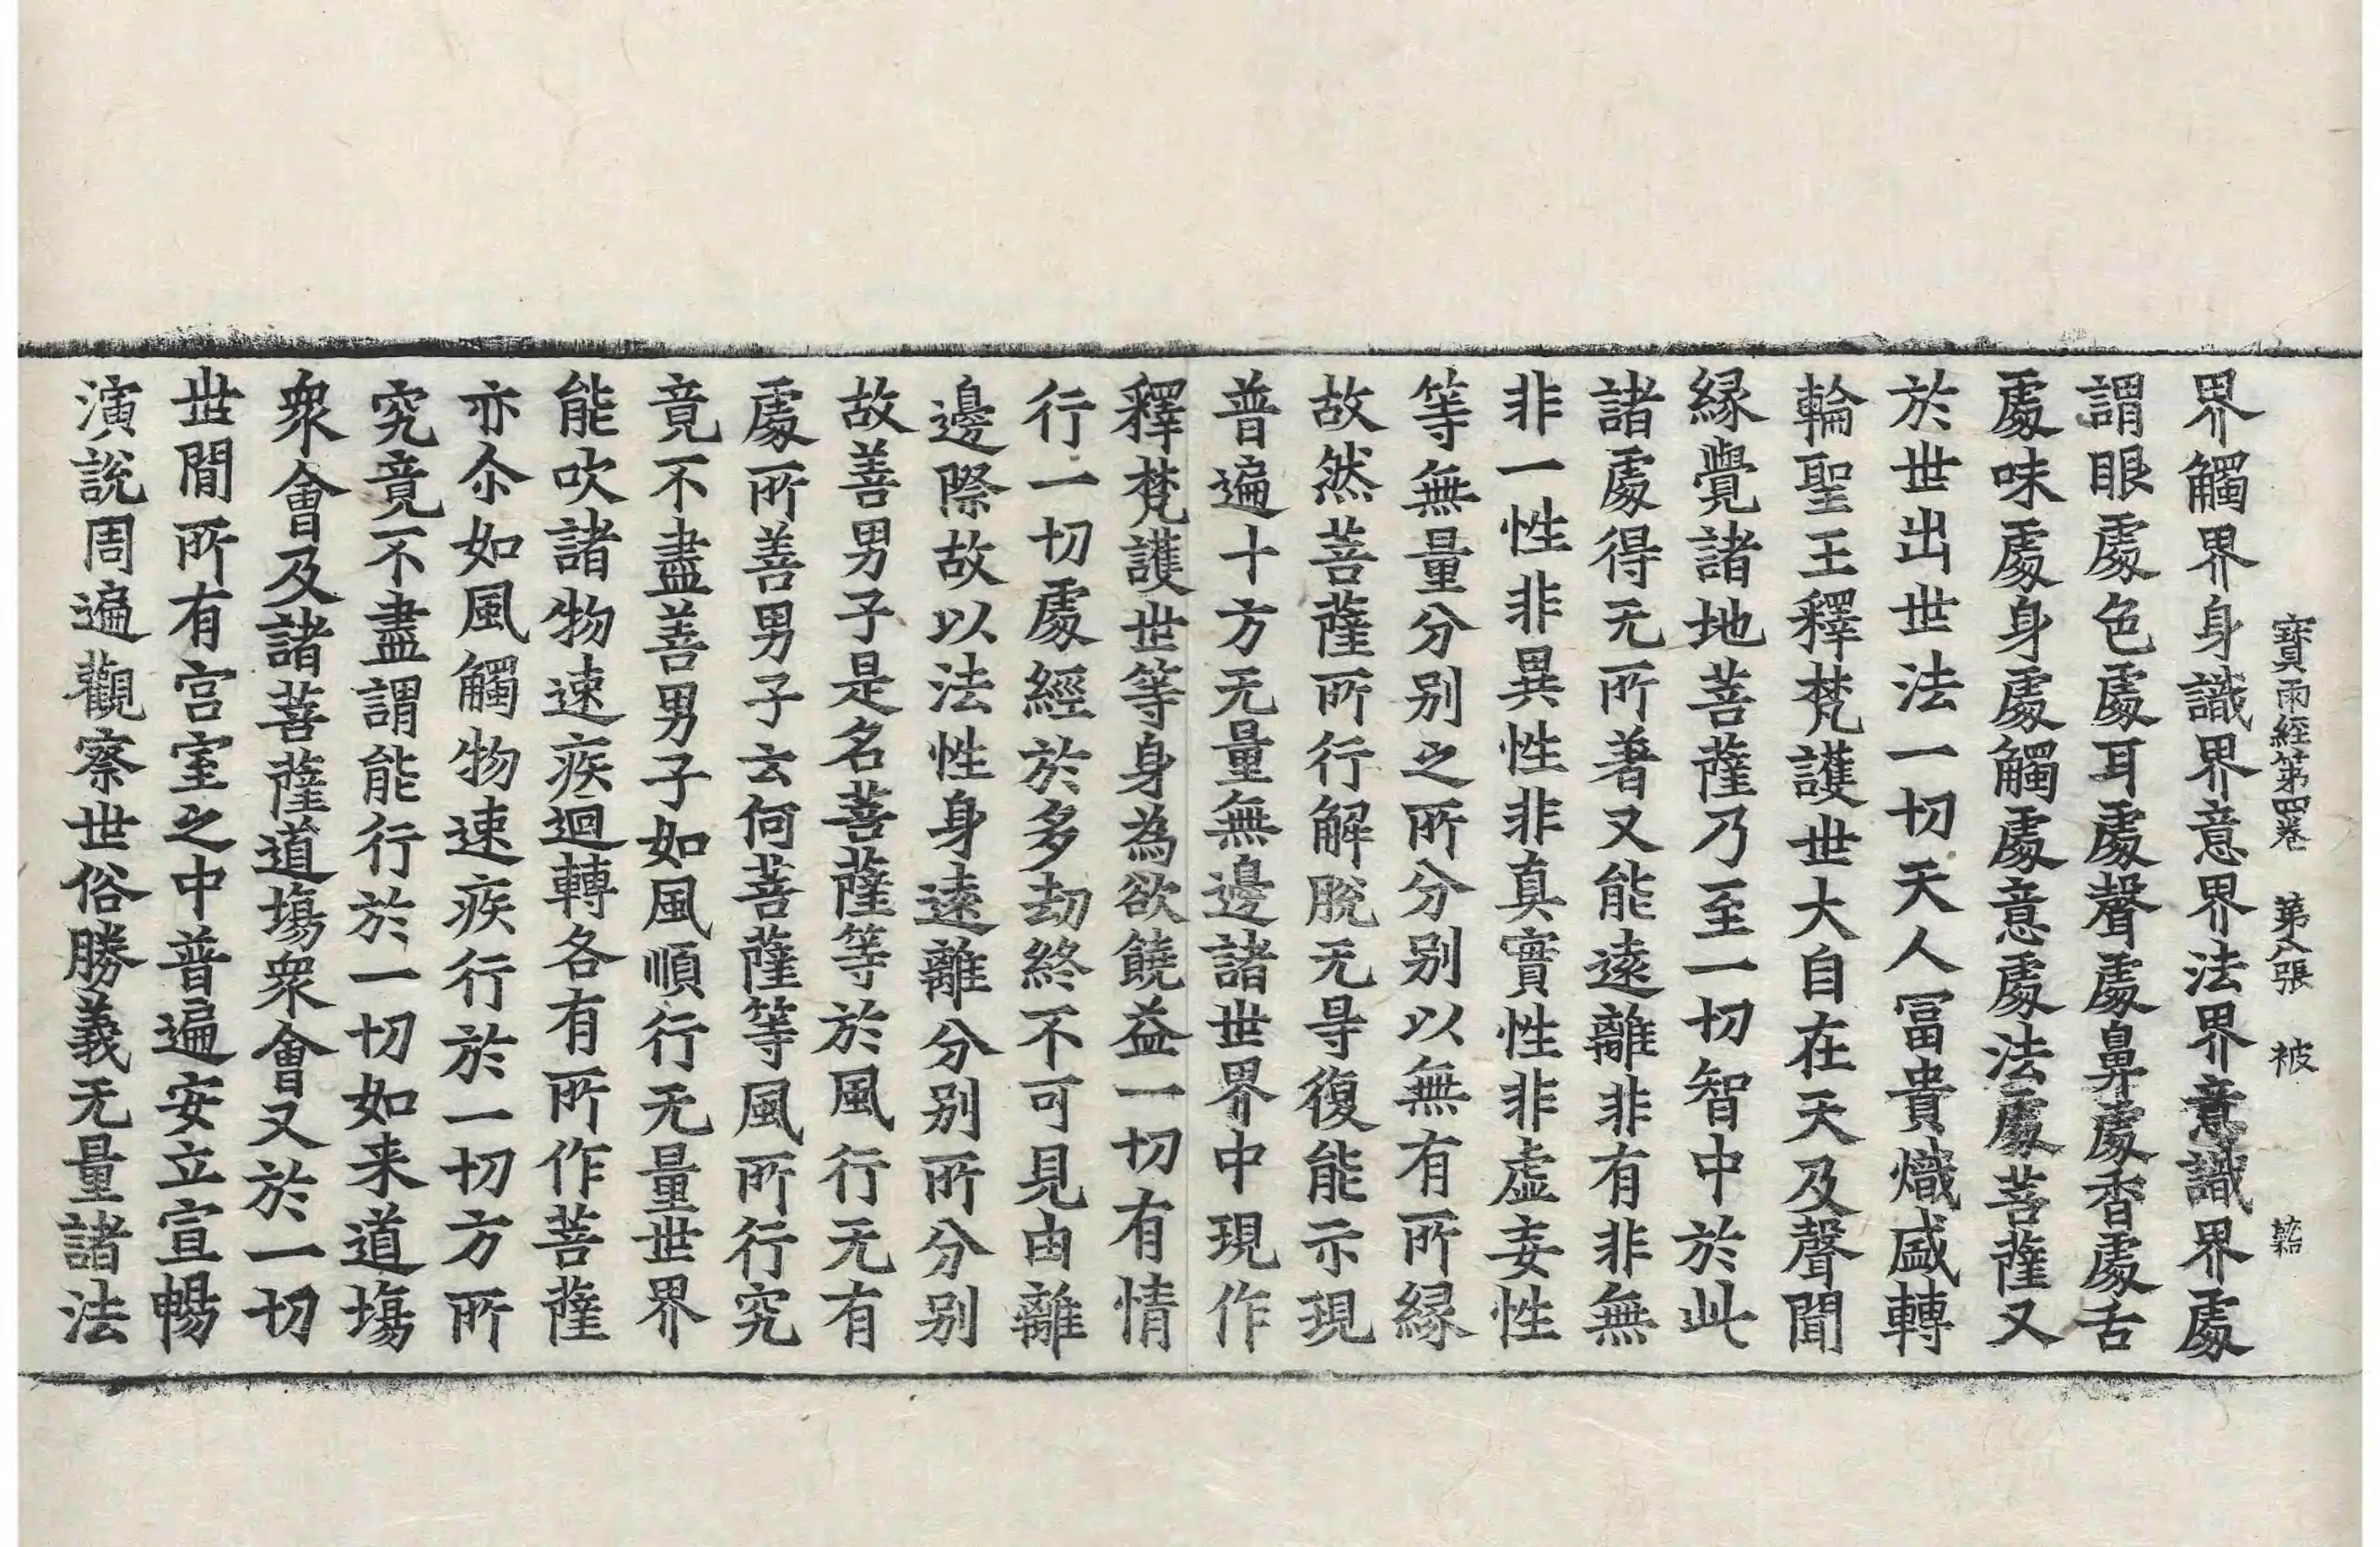 寶雨經第四卷 第八張 被
界觸界身識界意界法界意識界處
謂眼處色處耳處聲處鼻處香處舌
處味處身處觸處意處法處菩薩又
於世出世法一切天人冨貴熾盛轉
輪聖王釋梵護世大自在天及聲聞
縁覺諸地菩薩乃至一切智中於此
諸處得无所著又能遠離非有非無
非一性非異性非真實性非虛妄性
等無量分別之所分別以無有所縁
故然菩薩所行解脫无㝵復能示現
普遍十方无量無邊諸世界中現作
釋梵護世等身為欲饒益一切有情
行一切處經於多劫終不可見由離
邊際故以法性身遠離分別所分別
故善男子是名菩薩等於風行无有
處所善男子云何菩薩等風所行究
竟不盡善男子如風順行无量世界
能吹諸物速疾迴轉各有所作菩薩
亦尒如風觸物速疾行於一切方所
究竟不盡謂能行於一切如来道場
衆會及諸菩薩道場衆會又於一切
世間所有宫室之中普遍安立宣暢
演說周遍觀察世俗勝義无量諸法